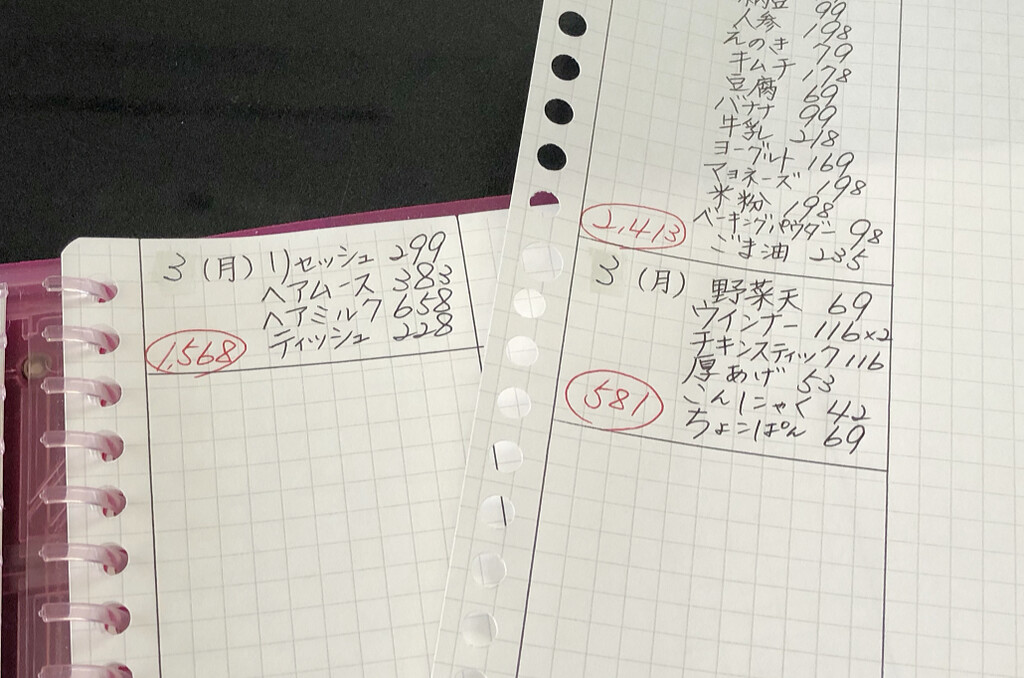 3(月)リセッシュ 299
ヘアムース 383
ヘアミルク 658
ティッシュ 228
1,568
99
人参 198
えのき 79
キムチ 178
豆腐 69
バナナ 99
牛乳 218
ヨーグルト 169
マヨネーズ 198
米粉 198
ベーキングパウダー 98
ごま油 235
2,413
3(月) 野菜天 69
ウインナー 116×2
チキンスティック 116
厚あげ 53
こんにゃく 42
ちょこぱん 69
581